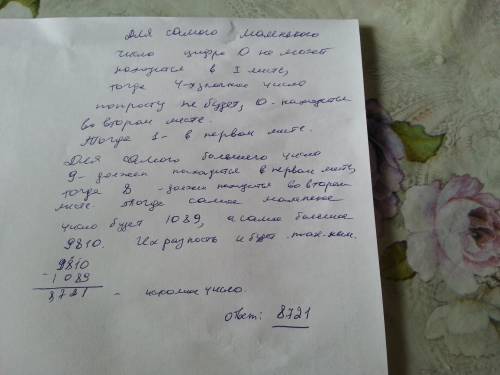 Для самого маленького
число цифра 0 не может
находится в 1 месте,
тогда 4-хзначное число
попросту не будет, 0 - находится
во втором месте.
Тогда 1 - в первом месте.
Для самого большего число
9 - должен находится в первом месте,
тогда 8 - должен находится во втором
месте. Тогда самое маленькое
число будет 1089, а самое большое
9810. Их разность и будет
9810
- 1089
8721 - число.
ответ: 8721